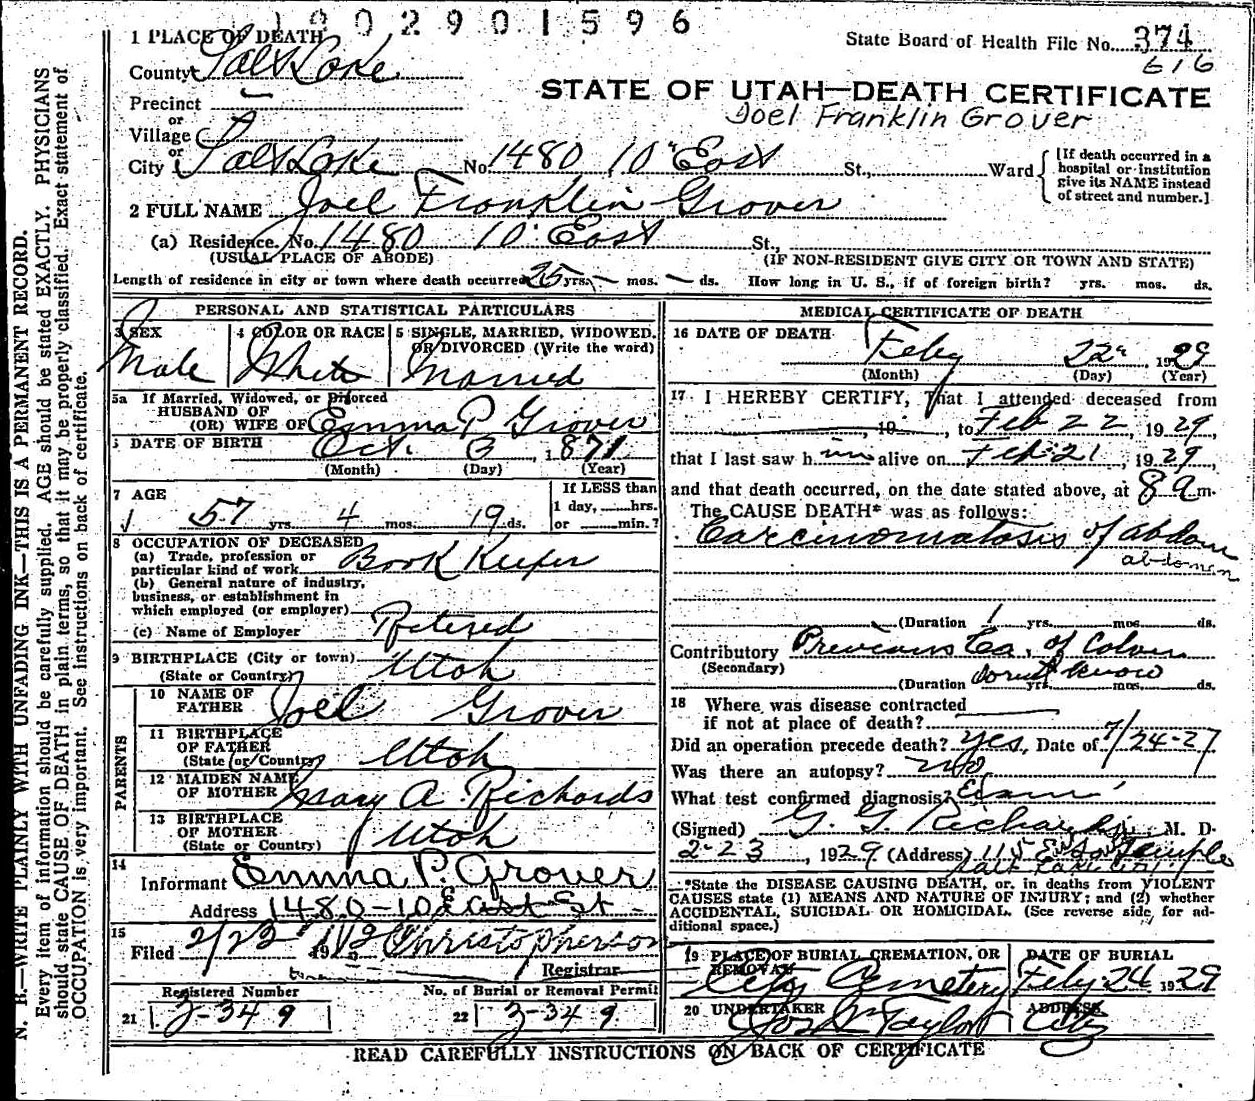 1902901596
State Board of Health File No. 374
616
STATE OF UTAH—DEATH CERTIFICATE
Joel Franklin Grover
1 PLACE OF DEATH
County Salt Lake
Precinct
or
Village
or
City Salt Lake No. 1480 10" East St., Ward
[If death occurred in a
hospital or institution
give its NAME instead
of street and number.]
2 FULL NAME Joel Franklin Grover
(a) Residence. No. 1480 10" East St.,
(USUAL PLACE OF ABODE) (IF NON-RESIDENT GIVE CITY OR TOWN AND STATE)
Length of residence in city or town where death occurred 25 yrs. — mos. — ds. How long in U. S., if of foreign birth? yrs. mos. ds.
PERSONAL AND STATISTICAL PARTICULARS
3 SEX
Male
4 COLOR OR RACE
White
5 SINGLE, MARRIED, WIDOWED,
OR DIVORCED (Write the word)
Married
5a If Married, Widowed, or Divorced
HUSBAND OF
(OR) WIFE OF Emma P Grover
6 DATE OF BIRTH Oct. 3, 1871
(Month) (Day) (Year)
7 AGE
57 yrs. 4 mos. 19 ds.
If LESS than
1 day, hrs.
or min.?
8 OCCUPATION OF DECEASED
(a) Trade, profession or
particular kind of work Book Keeper
(b) General nature of industry,
business, or establishment in
which employed (or employer)
(c) Name of Employer Retired
9 BIRTHPLACE (City or town)
(State or Country) Utah
PARENTS
10 NAME OF
FATHER Joel Grover
11 BIRTHPLACE
OF FATHER
(State or Country) Utah
12 MAIDEN NAME
OF MOTHER Mary A. Richards
13 BIRTHPLACE
OF MOTHER
(State or Country) Utah
14
Informant Emma P. Grover
Address 1480-10 East St
15
Filed 2/23 19 Christopherson
Registrar
Registered Number No. of Burial or Removal Permit
21 3-349 22 3-349
MEDICAL CERTIFICATE OF DEATH
16 DATE OF DEATH
Feby 22" 1929
(Month) (Day) (Year)
17 I HEREBY CERTIFY, That I attended deceased from
, 19 , to Feb 22, 1929,
that I last saw h im alive on Feb. 21, 1929,
and that death occurred, on the date stated above, at 8 a m.
The CAUSE DEATH* was as follows:
Carcinomatosis of abdom
abdomen
(Duration 1 yrs. mos. ds.
Contributory Previous Ca. of Colon
(Secondary)
(Duration dont know yrs. mos. ds.
18 Where was disease contracted
if not at place of death?
Did an operation precede death? yes, Date of 7/24-27
Was there an autopsy? no
What test confirmed diagnosis? Exam
(Signed) G. G. Richards, M. D.
2-23, 1929 (Address) South Temple
Salt Lake City
*State the DISEASE CAUSING DEATH, or, in deaths from VIOLENT
CAUSES state (1) MEANS AND NATURE OF INJURY; and (2) whether
ACCIDENTAL, SUICIDAL OR HOMICIDAL. (See reverse side for ad-
ditional space.)
19 PLACE OF BURIAL, CREMATION, OR
REMOVAL
City Cemetery
DATE OF BURIAL
Feby 24 1929
20 UNDERTAKER
Jos. Taylor
ADDRESS
City
READ CAREFULLY INSTRUCTIONS ON BACK OF CERTIFICATE
N. B.—WRITE PLAINLY WITH UNFADING INK—THIS IS A PERMANENT RECORD.
Every item of information should be carefully supplied. AGE should be stated EXACTLY. PHYSICIANS
should state CAUSE OF DEATH in plain terms, so that it may be properly classified. Exact statement of
OCCUPATION is very important. See instructions on back of certificate.